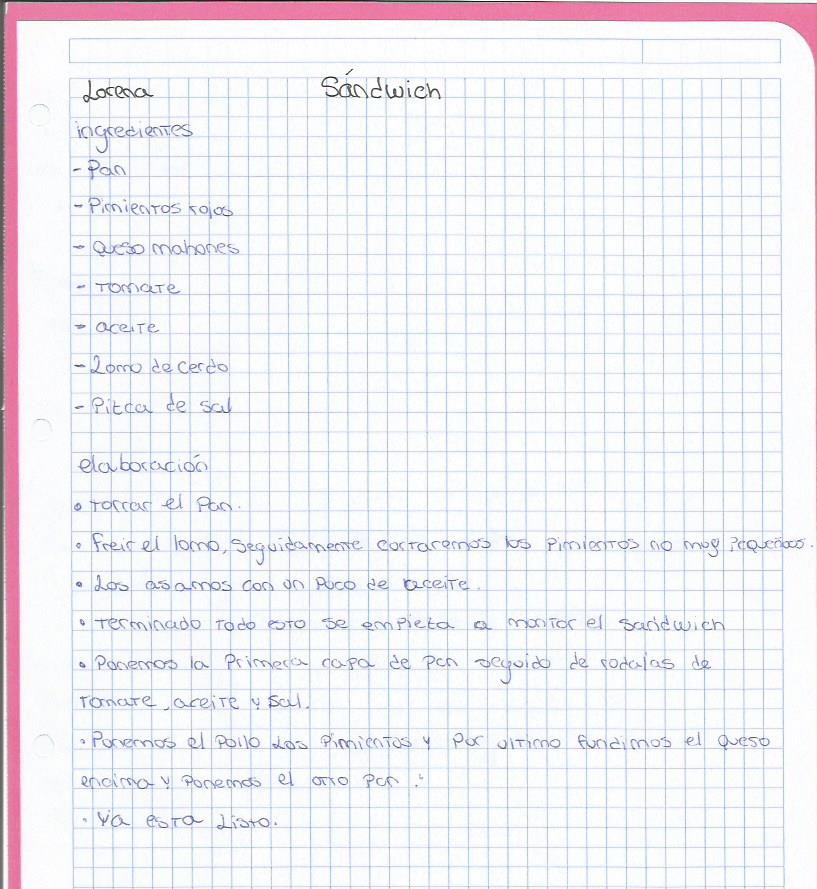 Lorena Sándwich
ingredientes
- Pan
- Pimientos rojos
- Queso mahones
- Tomate
- aceite
- Lomo de cerdo
- Pitca de sal
elaboración
• Torrar el Pan.
• Freir el lomo, seguidamente cortaremos los Pimientos no muy Pequeños.
• Los asamos con un Poco de aceite.
• Terminado Todo esto se empieta a montor el sandwich
• Ponemos la Primera capa de Pan seguido de rodajas de
Tomate, aceite y sal.
• Ponemos el Pollo Los Pimientos y Por ultimo fundimos el queso
encima y Ponemos el otro Pan.
• Ya esta Listo.